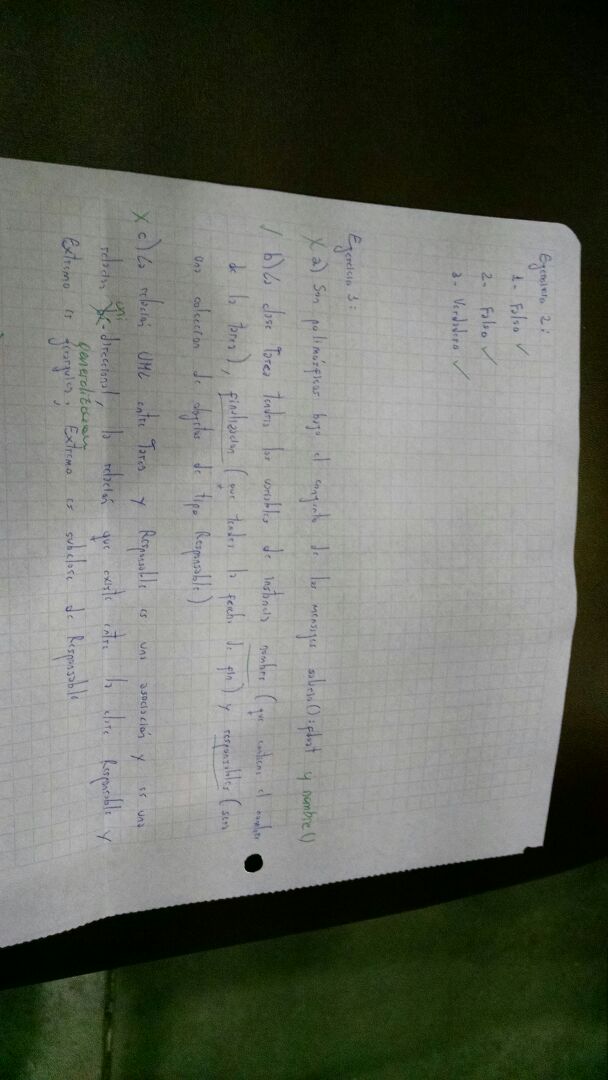 Ejercicio 2:
1- Falso ✓
2- Falso ✓
3- Verdadero ✓
Ejercicio 1:
X a) Son polimórficos bajo el conjunto de los mensajes y nombre()
✓ b) La clase Tarea tendra las variables de instancia nombre (que contiene el nombre
de la tarea), finalizacion (que tendra la fecha de fin) y responsables (sera
una coleccion de objetos de tipo Responsable)
X c) La relación UML entre Tarea y Responsable es una asociación y es una
uni
relacion -direccional, la relación que existe entre la clase Responsable y
generalizacion
Extremo es ; Extremo es subclase de Responsable